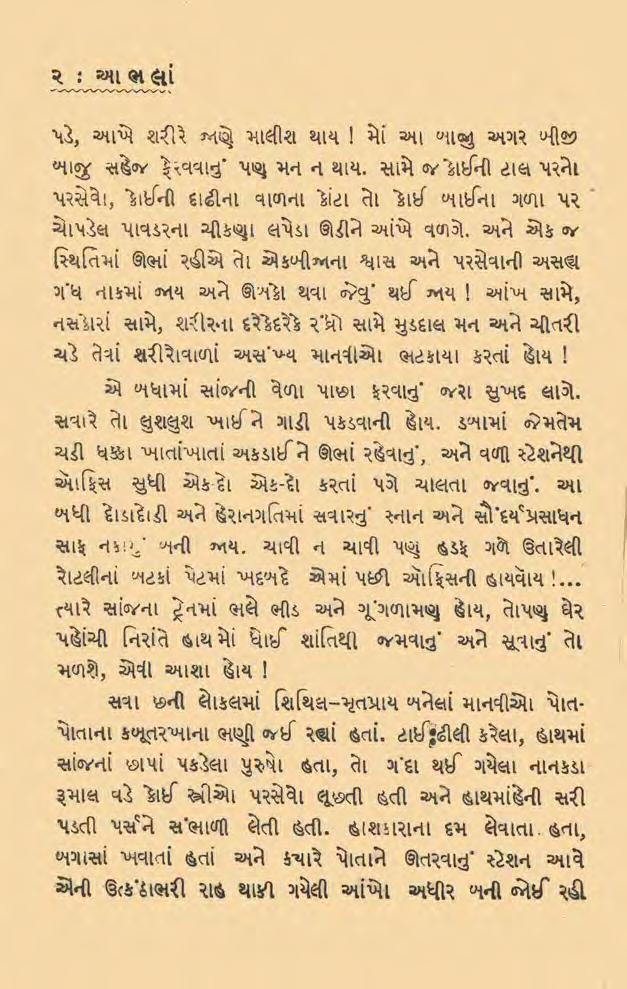 ૨ : આભલાં
પડે, આખે શરીરે જાણે માલીશ થાય ! મોં આ બાજુ અગર બીજી
બાજુ સહેજ ફેરવવાનું પણ મન ન થાય. સામે જ કોઈની ટાલ પરનો
પરસેવો, કોઈની દાઢીના વાળના કાંટા તો કોઈ બાઈના ગળા પર
ચોપડેલ પાવડરના ચીકણા લપેડા ઊડીને આંખે વળગે. અને એક જ
સ્થિતિમાં ઊભાં રહીએ તો એકબીજાના શ્વાસ અને પરસેવાની અસહ્ય
ગંધ નાકમાં જાય અને ઊબકો થવા જેવું થઈ જાય ! આંખ સામે,
નસકોરાં સામે, શરીરના દરેકેદરેક રંધ્રો સામે મુડદાલ મન અને ચીતરી
ચડે તેવાં શરીરોવાળાં અસંખ્ય માનવીઓ ભટકાયા કરતાં હોય !
એ બધામાં સાંજની વેળા પાછા ફરવાનું જરા સુખદ લાગે.
સવારે તો લુશલુશ ખાઈને ગાડી પકડવાની હોય. ડબામાં જેમતેમ
ચડી ધક્કા ખાતાંખાતાં અકડાઈને ઊભાં રહેવાનું, અને વળી સ્ટેશનેથી
ઑફિસ સુધી એક-દો એક-દો કરતાં પગે ચાલતા જવાનું. આ
બધી દોડાદોડી અને હેરાનગતિમાં સવારનું સ્નાન અને સૌંદર્યપ્રસાધન
સાફ નકામું બની જાય. ચાવી ન ચાવી પણ હડફ ગળે ઉતારેલી
રોટલીનાં બટકાં પેટમાં ખદબદે એમાં પછી ઑફિસની હાયવૉય !...
ત્યારે સાંજના ટ્રેનમાં ભલે ભીડ અને ગૂંગળામણ હોય, તોપણ ઘેર
પહોંચી નિરાંતે હાથ મોં ધોઈ શાંતિથી જમવાનું અને સૂવાનું તો
મળશે, એવી આશા હોય !
સવા છની લોકલમાં શિથિલ–મૃતપ્રાય બનેલાં માનવીઓ પોત-
પોતાના કબૂતરખાના ભણી જઈ રહ્યાં હતાં. ટાઈ ઢીલી કરેલા, હાથમાં
સાંજનાં છાપાં પકડેલા પુરુષો હતા, તો ગંદા થઈ ગયેલા નાનકડા
રૂમાલ વડે કોઈ સ્ત્રીઓ પરસેવો લૂછતી હતી અને હાથમાંહેની સરી
પડતી પર્સને સંભાળી લેતી હતી. હાશકારાના દમ લેવાતા હતા,
બગાસાં ખવાતાં હતાં અને ક્યારે પોતાને ઊતરવાનું સ્ટેશન આવે
એની ઉત્કંઠાભરી રાહ થાકી ગયેલી આંખો અધીર બની જોઈ રહી